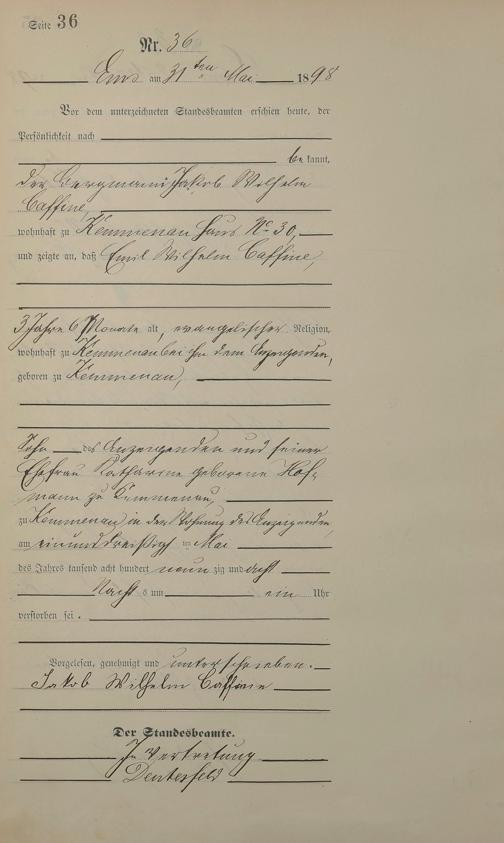 Seite 36
Nr. 36
Ems am 31ten Mai 1898
Vor dem unterzeichneten Standesbeamten erschien heute, der
Persönlichkeit nach
be kannt,
der Bergmann Jakob Wilhelm
Caffine,
wohnhaft zu Kemmenau Haus No 30,
und zeigte an, daß Emil Wilhelm Caffine,
3 Jahre 6 Monate alt, evangelischer Religion,
wohnhaft zu Kemmenau bei ihm dem Anzeigenden,
geboren zu Kemmenau,
Sohn des Anzeigenden und seiner
Ehefrau Katharine geborene Hof-
mann zu Kemmenau,
zu Kemmenau in der Wohnung des Anzeigenden,
am einunddreißigsten Mai
des Jahres tausend acht hundert neun zig und acht
Nachts um ein Uhr
verstorben sei.
Vorgelesen, genehmigt und unterschrieben.
Jakob Wilhelm Caffine
Der Standesbeamte.
In Vertretung